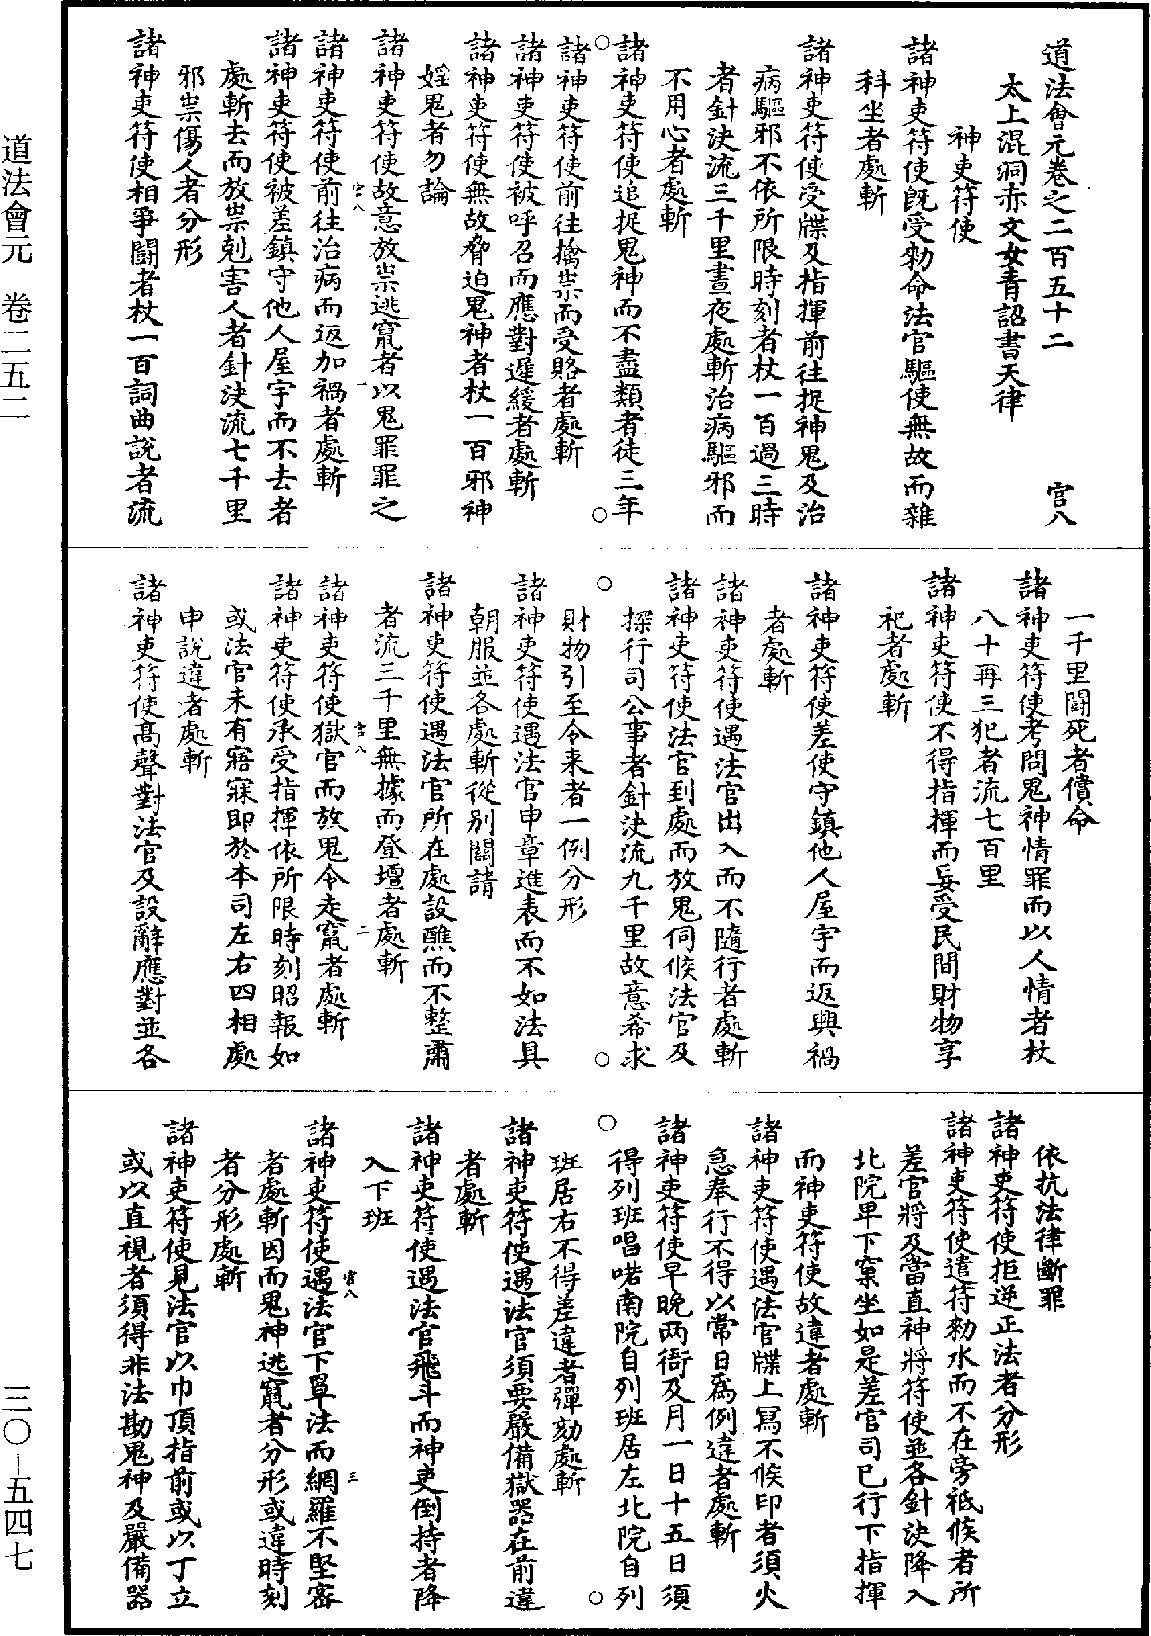 道法會元 卷二五二
三〇-五四七
道法會元卷之二百五十二 宫八
太上混洞赤文女青詔書天律
神吏符使
諸神吏符使旣受勑命法官驅使無故而雜
科坐者處斬
諸神吏符使受牒及指揮前往捉神鬼及治
病驅邪不依所限時刻者杖一百過三時
者針決流三千里晝夜處斬治病驅邪而
不用心者處斬
諸神吏符使追捉鬼神而不盡類者徒三年
諸神吏符使前往擒祟而受賂者處斬
諸神吏符使被呼召而應對遲緩者處斬
諸神吏符使無故脅迫鬼神者杖一百邪神
婬鬼者勿論
諸神吏符使故意放祟逃竄者以鬼罪罪之
宫八 一
諸神吏符使前往治病而返加禍者處斬
諸神吏符使被差鎮守他人屋宇而不去者
處斬去而放祟剋害人者針決流七千里
邪祟傷人者分形
諸神吏符使相爭鬪者杖一百詞曲說者流
一千里鬪死者償命
諸神吏符使考問鬼神情罪而以人情者杖
八十再三犯者流七百里
諸神吏符使不得指揮而妄受民間財物享
祀者處斬
諸神吏符使差使守鎮他人屋宇而返興禍
者處斬
諸神吏符使遇法官出入而不隨行者處斬
諸神吏符使法官到處而放鬼伺候法官及
探行司公事者針決流九千里故意希求
財物引至令来者一例分形
諸神吏符使遇法官申章進表而不如法具
朝服並各處斬從別關請
諸神吏符使遇法官所在處設醮而不整肅
者流三千里無據而登壇者處斬
宫八 二
諸神吏符使獄官而放鬼令走竄者處斬
諸神吏符使承受指揮依所限時刻昭報如
或法官未有寤寐即於本司左右四相處
申說違者處斬
諸神吏符使高聲對法官及設辭應對並各
依抗法律斷罪
諸神吏符使拒逆正法者分形
諸神吏符使遣符勑水而不在旁祗候者所
差官將及當直神將符使並各針決降入
北院卑下窠坐如是差官司已行下指揮
而神吏符使故違者處斬
諸神吏符使遇法官牒上冩不候印者須火
急奉行不得以常日爲例違者處斬
諸神吏符使早晚两衙及月一日十五日須
得列班唱喏南院自列班居左北院自列
班居右不得差違者彈劾處斬
諸神吏符使遇法官須要嚴備獄器在前違
者處斬
諸神吏符使遇法官飛斗而神吏倒持者降
入下班
宫八 三
諸神吏符使遇法官下單法而網羅不堅密
者處斬因而鬼神逃竄者分形或違時刻
者分形處斬
諸神吏符使見法官以巾頂指前或以丁立
或以直視者須得非法勘鬼神及嚴備器